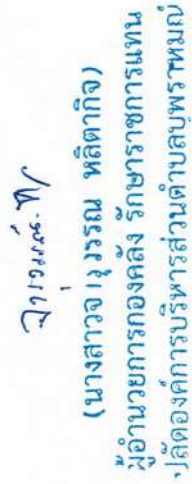 (นางสาวจารุวรรณ หลีตากิจ)
ผู้อำนวยการกองคลัง รักษาราชการแทน
ปลัดองค์การบริหารส่วนตำบลบุพราหมณ์